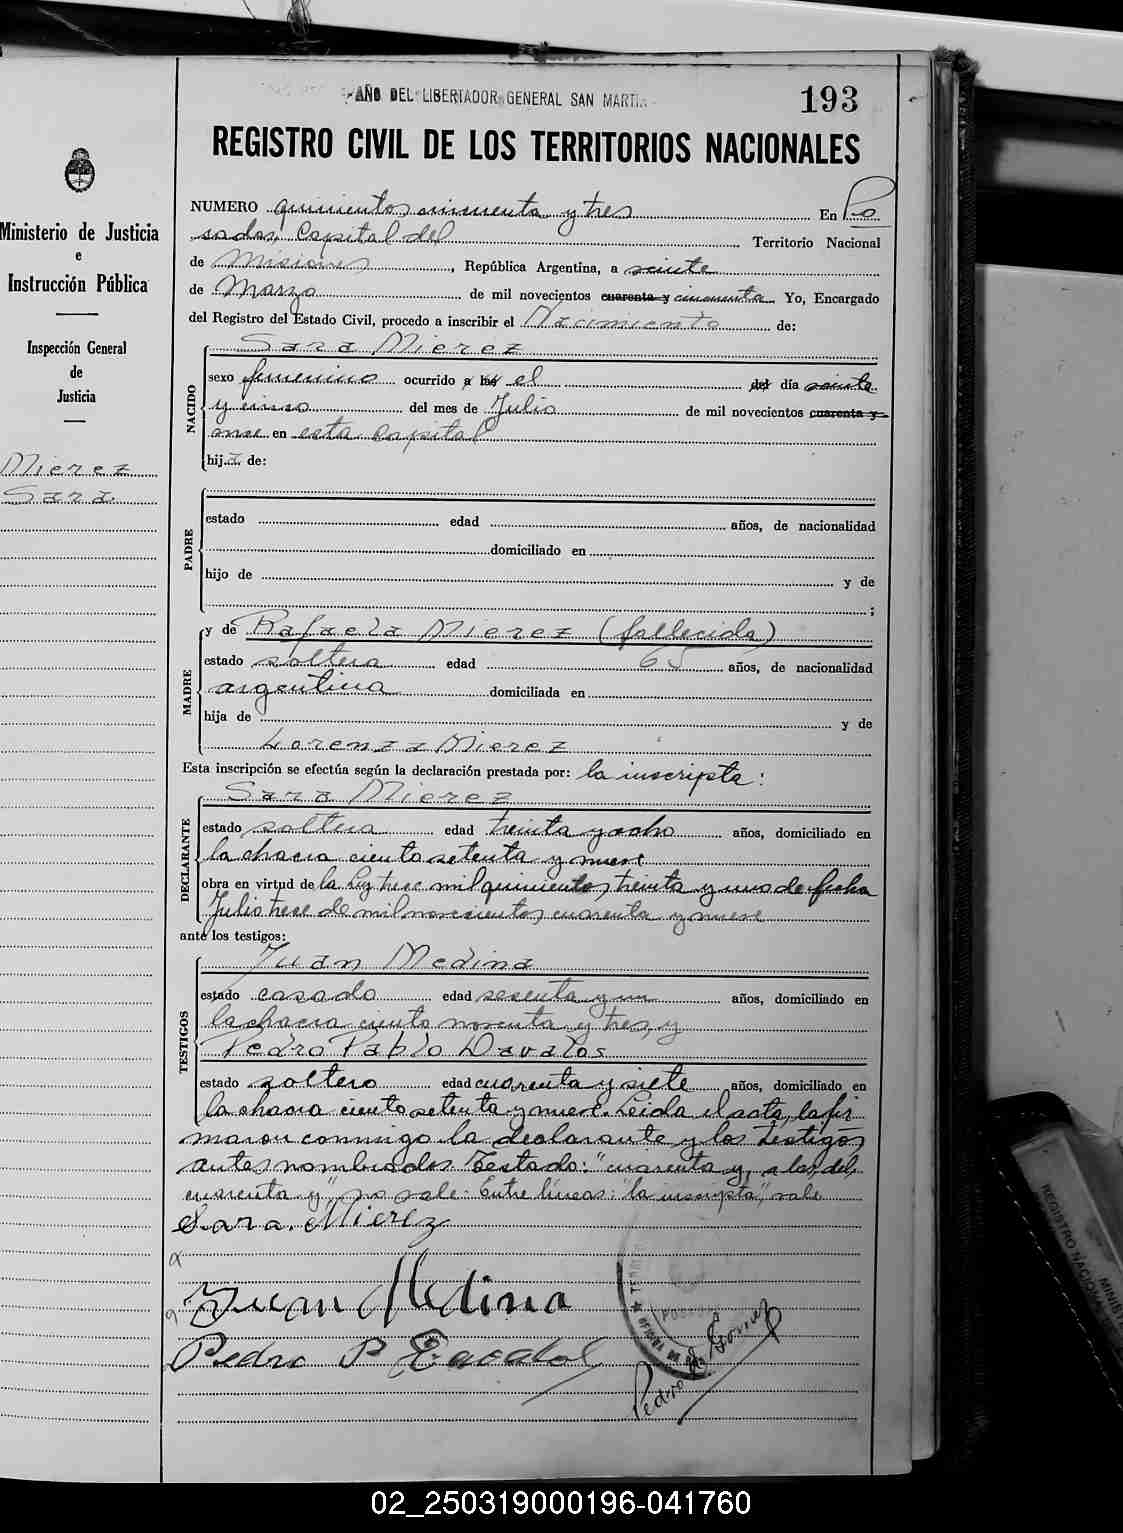 AÑO DEL LIBERTADOR GENERAL SAN MARTIN
193
REGISTRO CIVIL DE LOS TERRITORIOS NACIONALES
Ministerio de Justicia
e
Instrucción Pública
Inspección General
de
Justicia
Mierez
Sara
NUMERO quinientos cincuenta y tres En Po
sadas, Capital del Territorio Nacional
de Misiones, República Argentina, a veinte
de Marzo de mil novecientos cuarenta y cincuenta Yo, Encargado
del Registro del Estado Civil, procedo a inscribir el Nacimiento de:
Sara Mierez
NACIDO
sexo femenino ocurrido a las el del día veinte
y cinco del mes de Julio de mil novecientos cuarenta y
once en esta Capital
hija de:
PADRE
estado edad años, de nacionalidad
domiciliado en
hijo de y de
;
MADRE
y de Rafaela Mierez (fallecida)
estado soltera edad 65 años, de nacionalidad
argentina domiciliada en
hija de y de
Lorenza Mierez
Esta inscripción se efectúa según la declaración prestada por: la inscripta:
DECLARANTE
Sara Mierez
estado soltera edad treinta y ocho años, domiciliado en
la chacra ciento setenta y nueve
obra en virtud de la Ley trece mil quinientos treinta y uno de fecha
Julio trece de mil novecientos cuarenta y nueve
ante los testigos:
TESTIGOS
Juan Medina
estado casado edad sesenta y un años, domiciliado en
la chacra ciento noventa y tres, y
Pedro Pablo Davalos
estado soltero edad cuarenta y siete años, domiciliado en
la chacra ciento setenta y nueve. Leida el acta, la fir
maron conmigo la declarante y los testigos
antes nombrados Testado: "cuarenta y, a las, del,
cuarenta y" no vale. Entre líneas: "la inscripta", vale
Sara Mierez
Juan Medina
Pedro P
Pedro Gomez
REGISTRO NACIONAL
MINIST
02_250319000196-041760